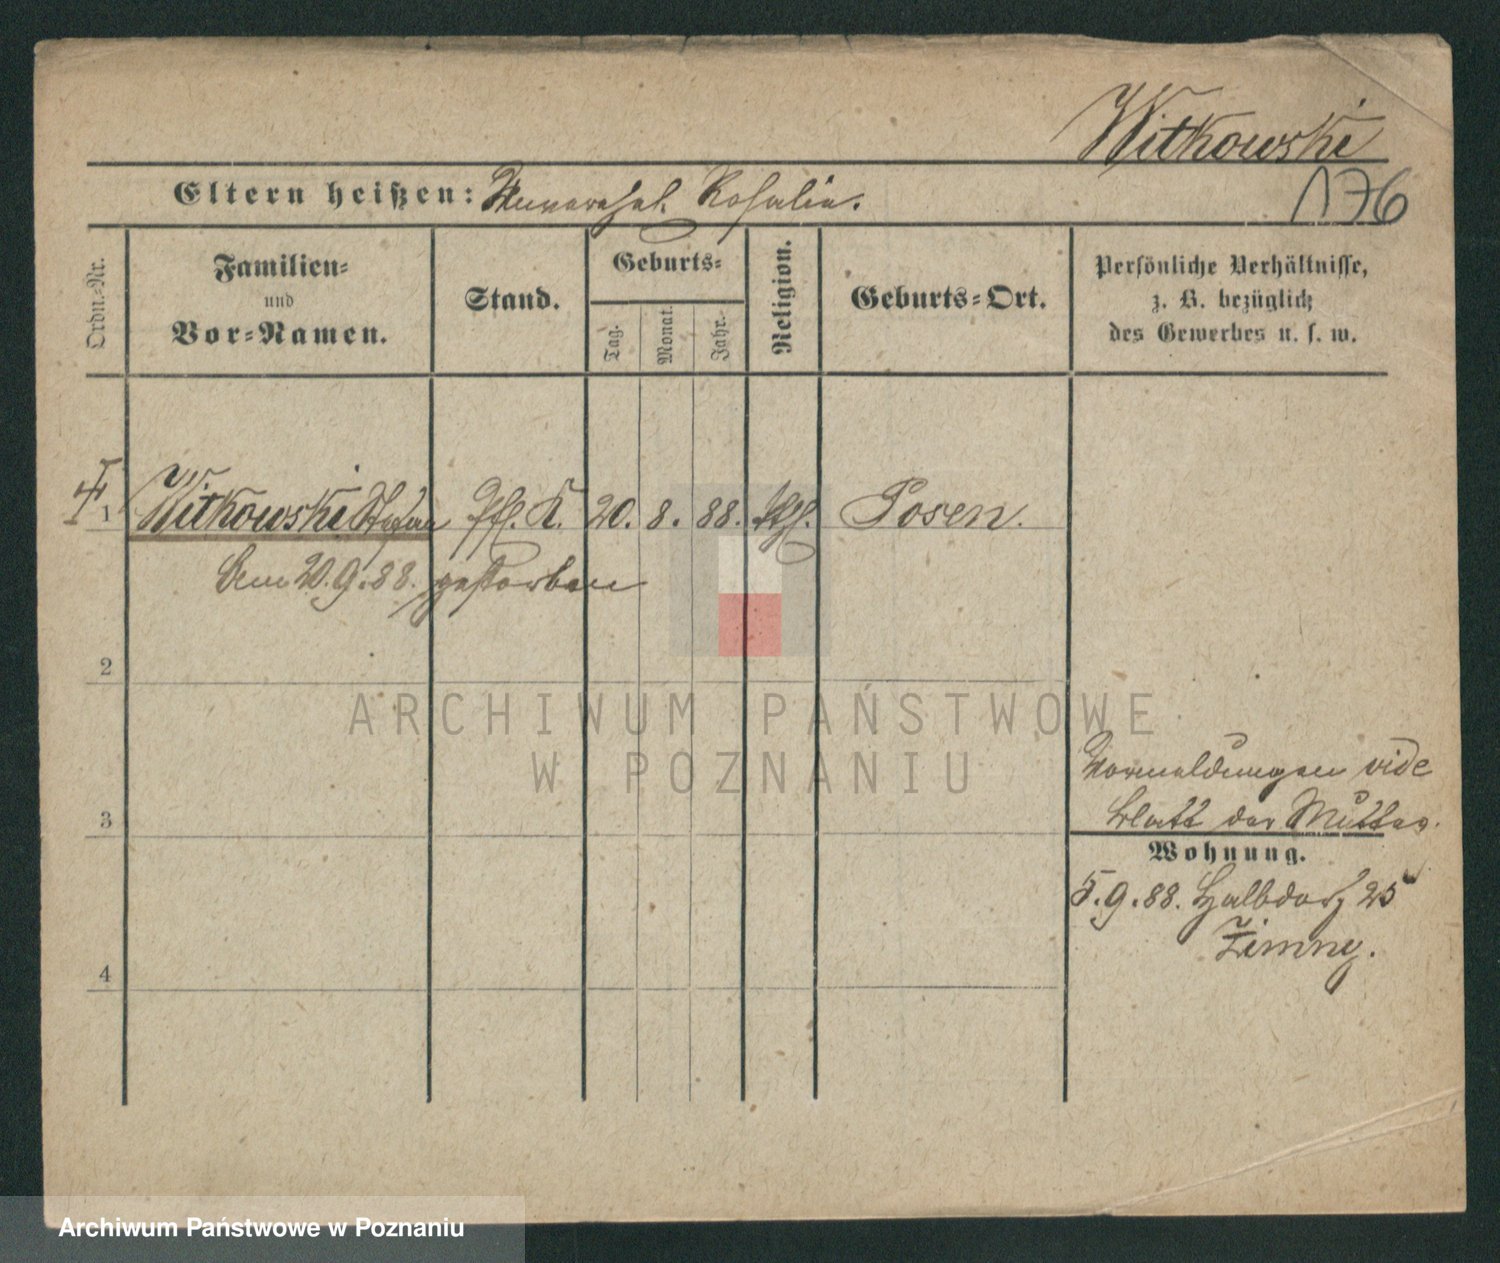 Witkowski
176
Eltern heißen: Unverehel. Rosalie.
Ordn.-Nr.
Familien-
und
Vor-Namen.
Stand.
Geburts-
Tag.
Monat.
Jahr.
Religion.
Geburts-Ort.
Persönliche Verhältnisse,
z. B. bezüglich
des Gewerbes u. s. w.
1 Witkowski Stefan Pfl. K. 20. 8. 88. kth. Posen.
Am 20.9.88. gestorben
2
3
4
Vormeldungen vide
Blatt der Mutter.
Wohnung.
5.9.88. Halbdorf 25
Zimny.
ARCHIWUM PAŃSTWOWE
W POZNANIU
Archiwum Państwowe w Poznaniu